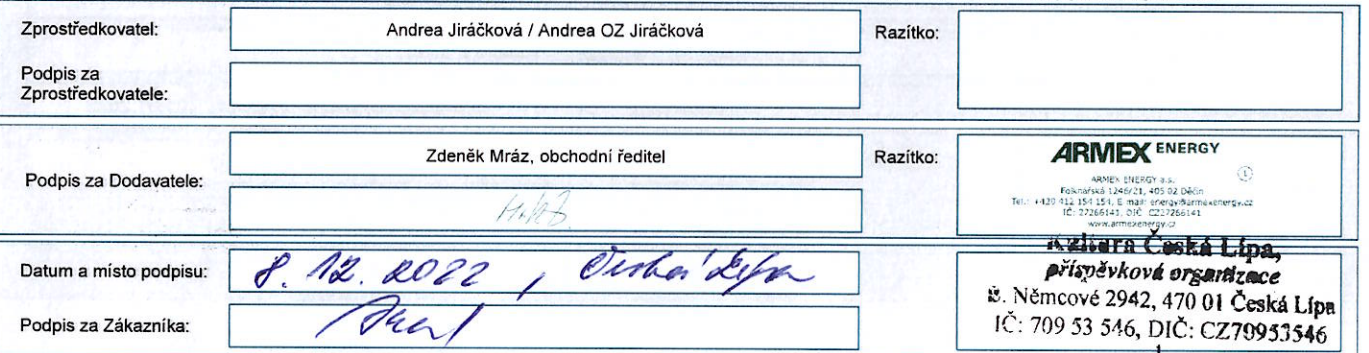 Zprostředkovatel: Andrea Jiráčková / Andrea OZ Jiráčková Razítko:
Podpis za
Zprostředkovatele:
Zdeněk Mráz, obchodní ředitel Razítko:
Podpis za Dodavatele:
ARMEX ENERGY
1
ARMEX ENERGY a.s.
Folknářská 1246/21, 405 02 Děčín
Tel.: +420 412 154 154, E mail: energy@armexenergy.cz
IČ: 27266141, DIČ CZ27266141
www.armexenergy.cz
Datum a místo podpisu: 8. 12. 2022 , Česká Lípa
Podpis za Zákazníka:
Kultura Česká Lípa,
příspěvková organizace
B. Němcové 2942, 470 01 Česká Lípa
IČ: 709 53 546, DIČ: CZ70953546
1